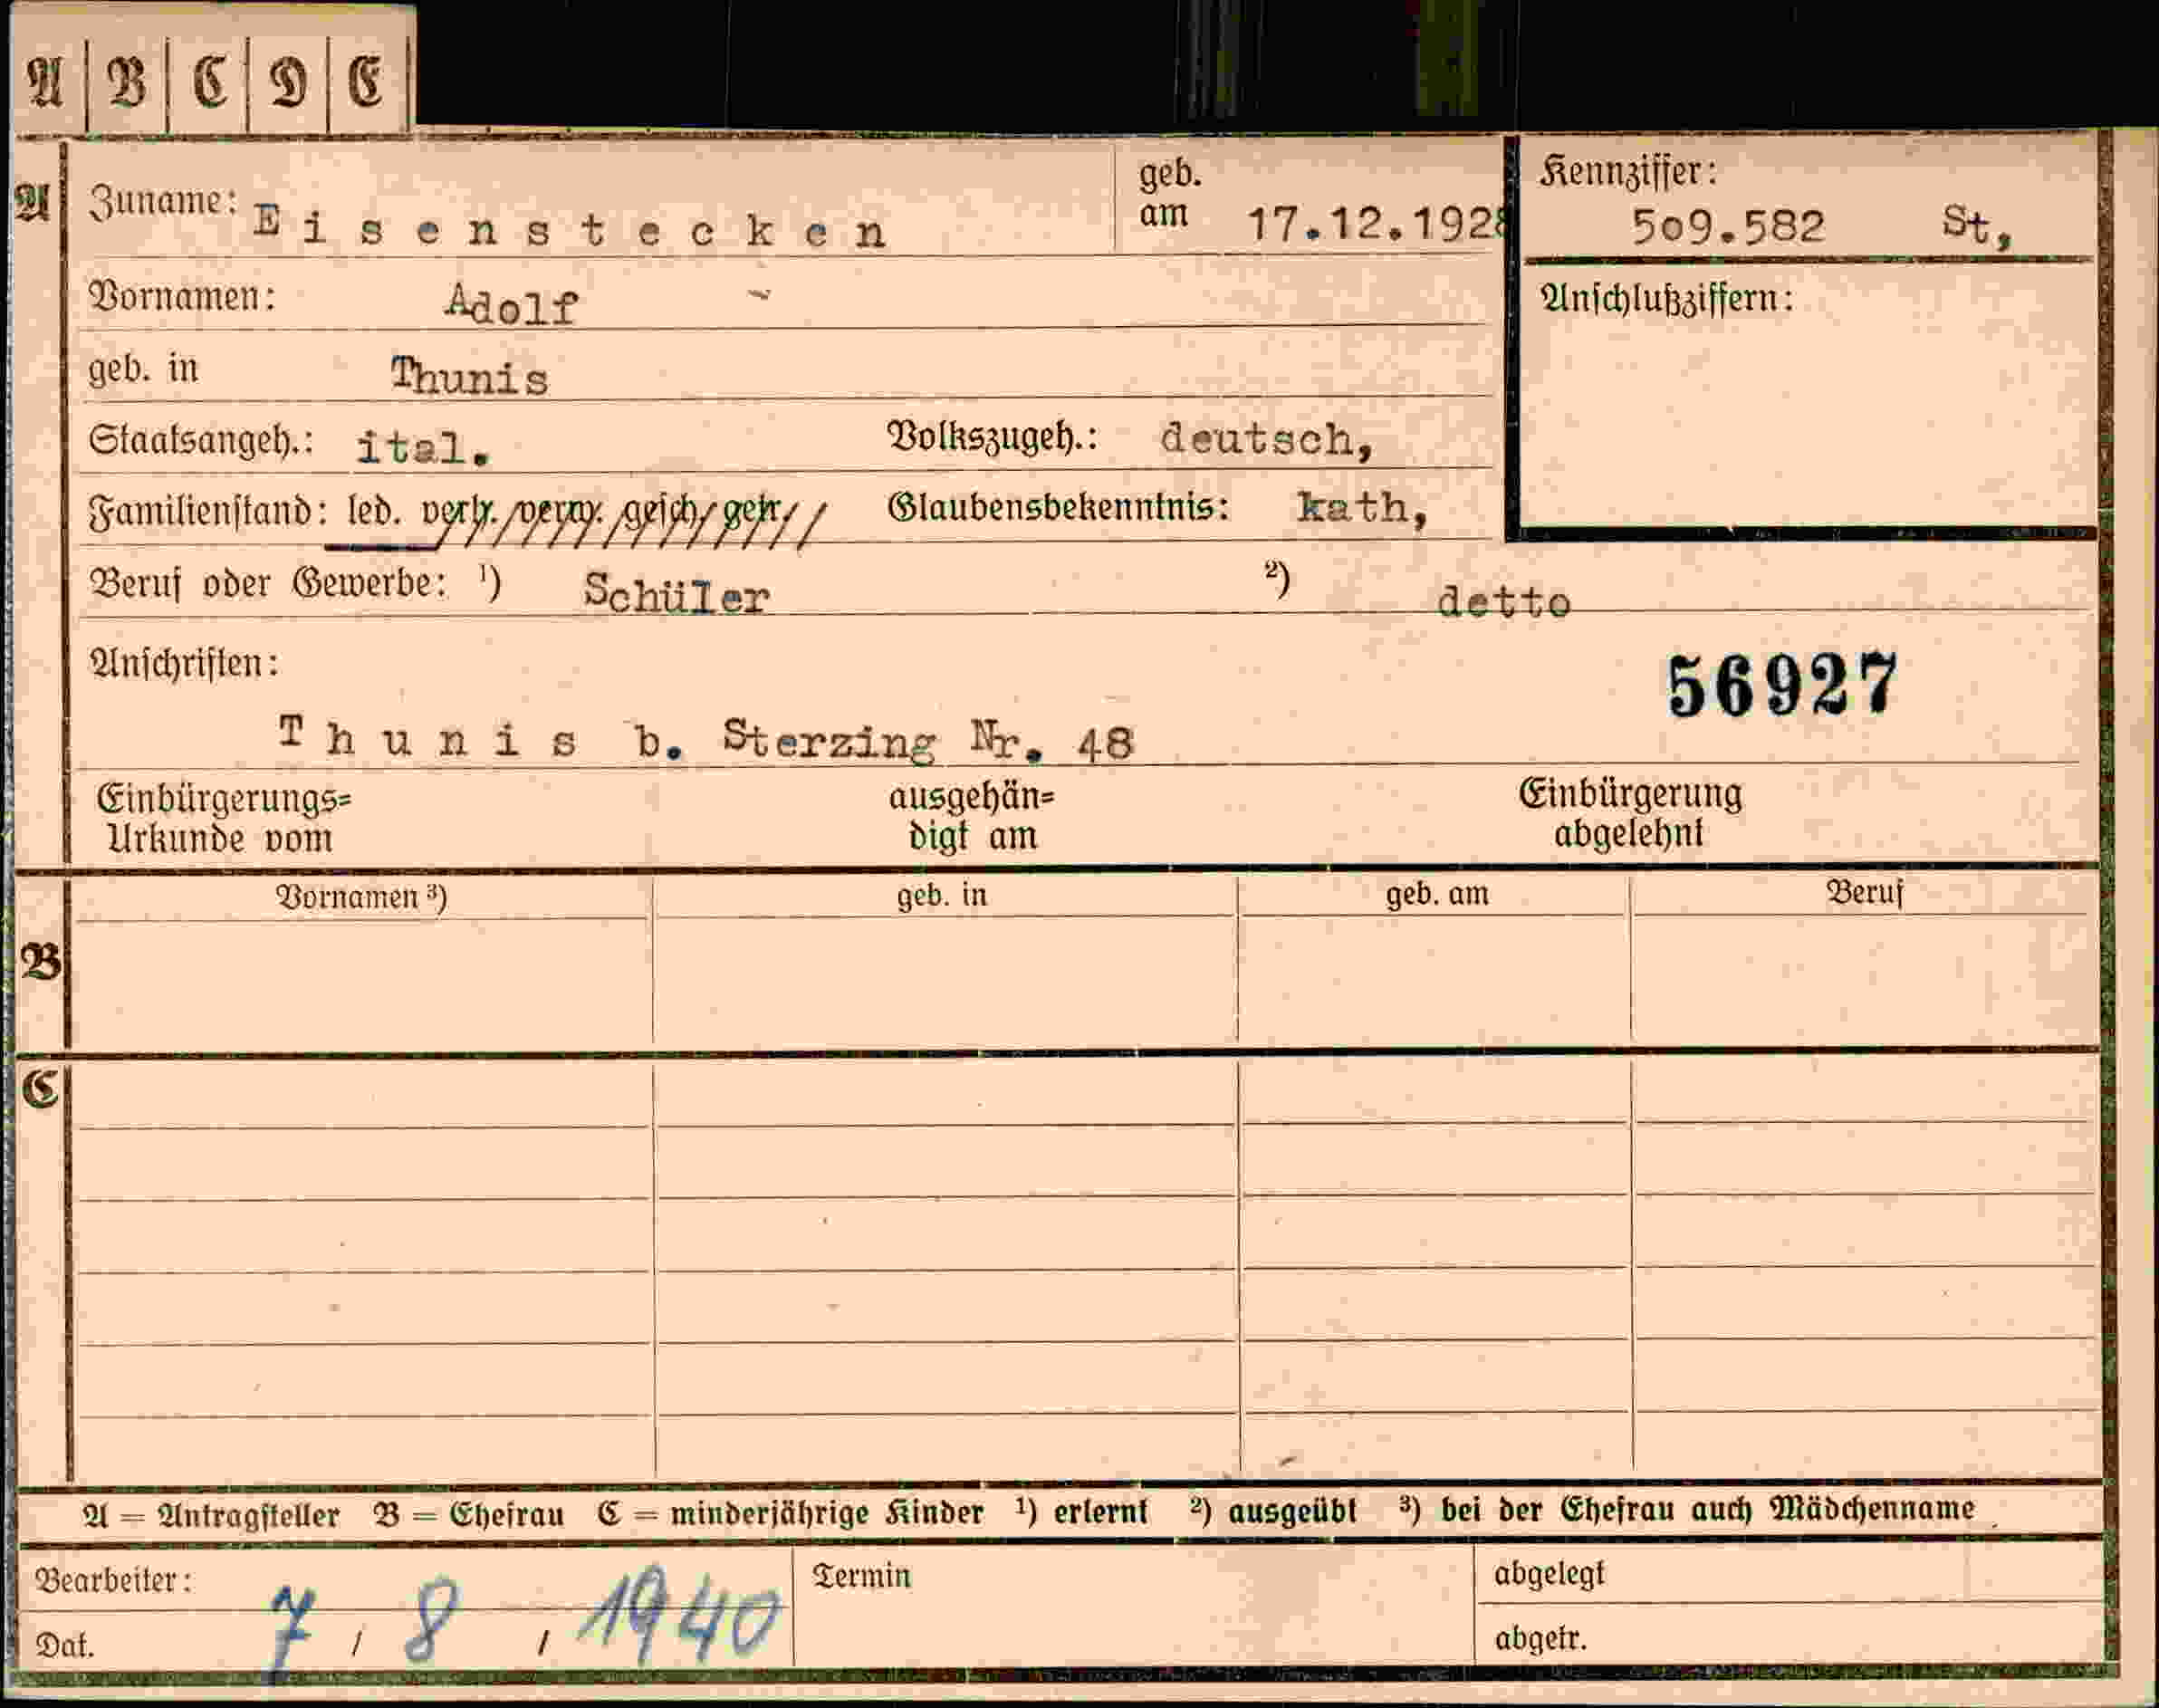 A B C D E
A Zuname: Eisenstecken geb. am 17.12.1928 Kennziffer: 509.582 St,
Vornamen: Adolf Anschlußziffern:
geb. in Thunis
Staatsangeh.: ital. Volkszugeh.: deutsch,
Familienstand: led. verh. verw. gesch. getr. Glaubensbekenntnis: kath,
Beruf oder Gewerbe: ¹) Schüler ²) detto
Anschriften: 56927
Thunis b. Sterzing Nr. 48
Einbürgerungs= ausgehän= Einbürgerung
Urkunde vom digt am abgelehnt
Vornamen ³) geb. in geb. am Beruf
B
C
A = Antragsteller B = Ehefrau C = minderjährige Kinder ¹) erlernt ²) ausgeübt ³) bei der Ehefrau auch Mädchenname
Bearbeiter: Termin abgelegt
Dat. 7 / 8 / 1940 abgetr.